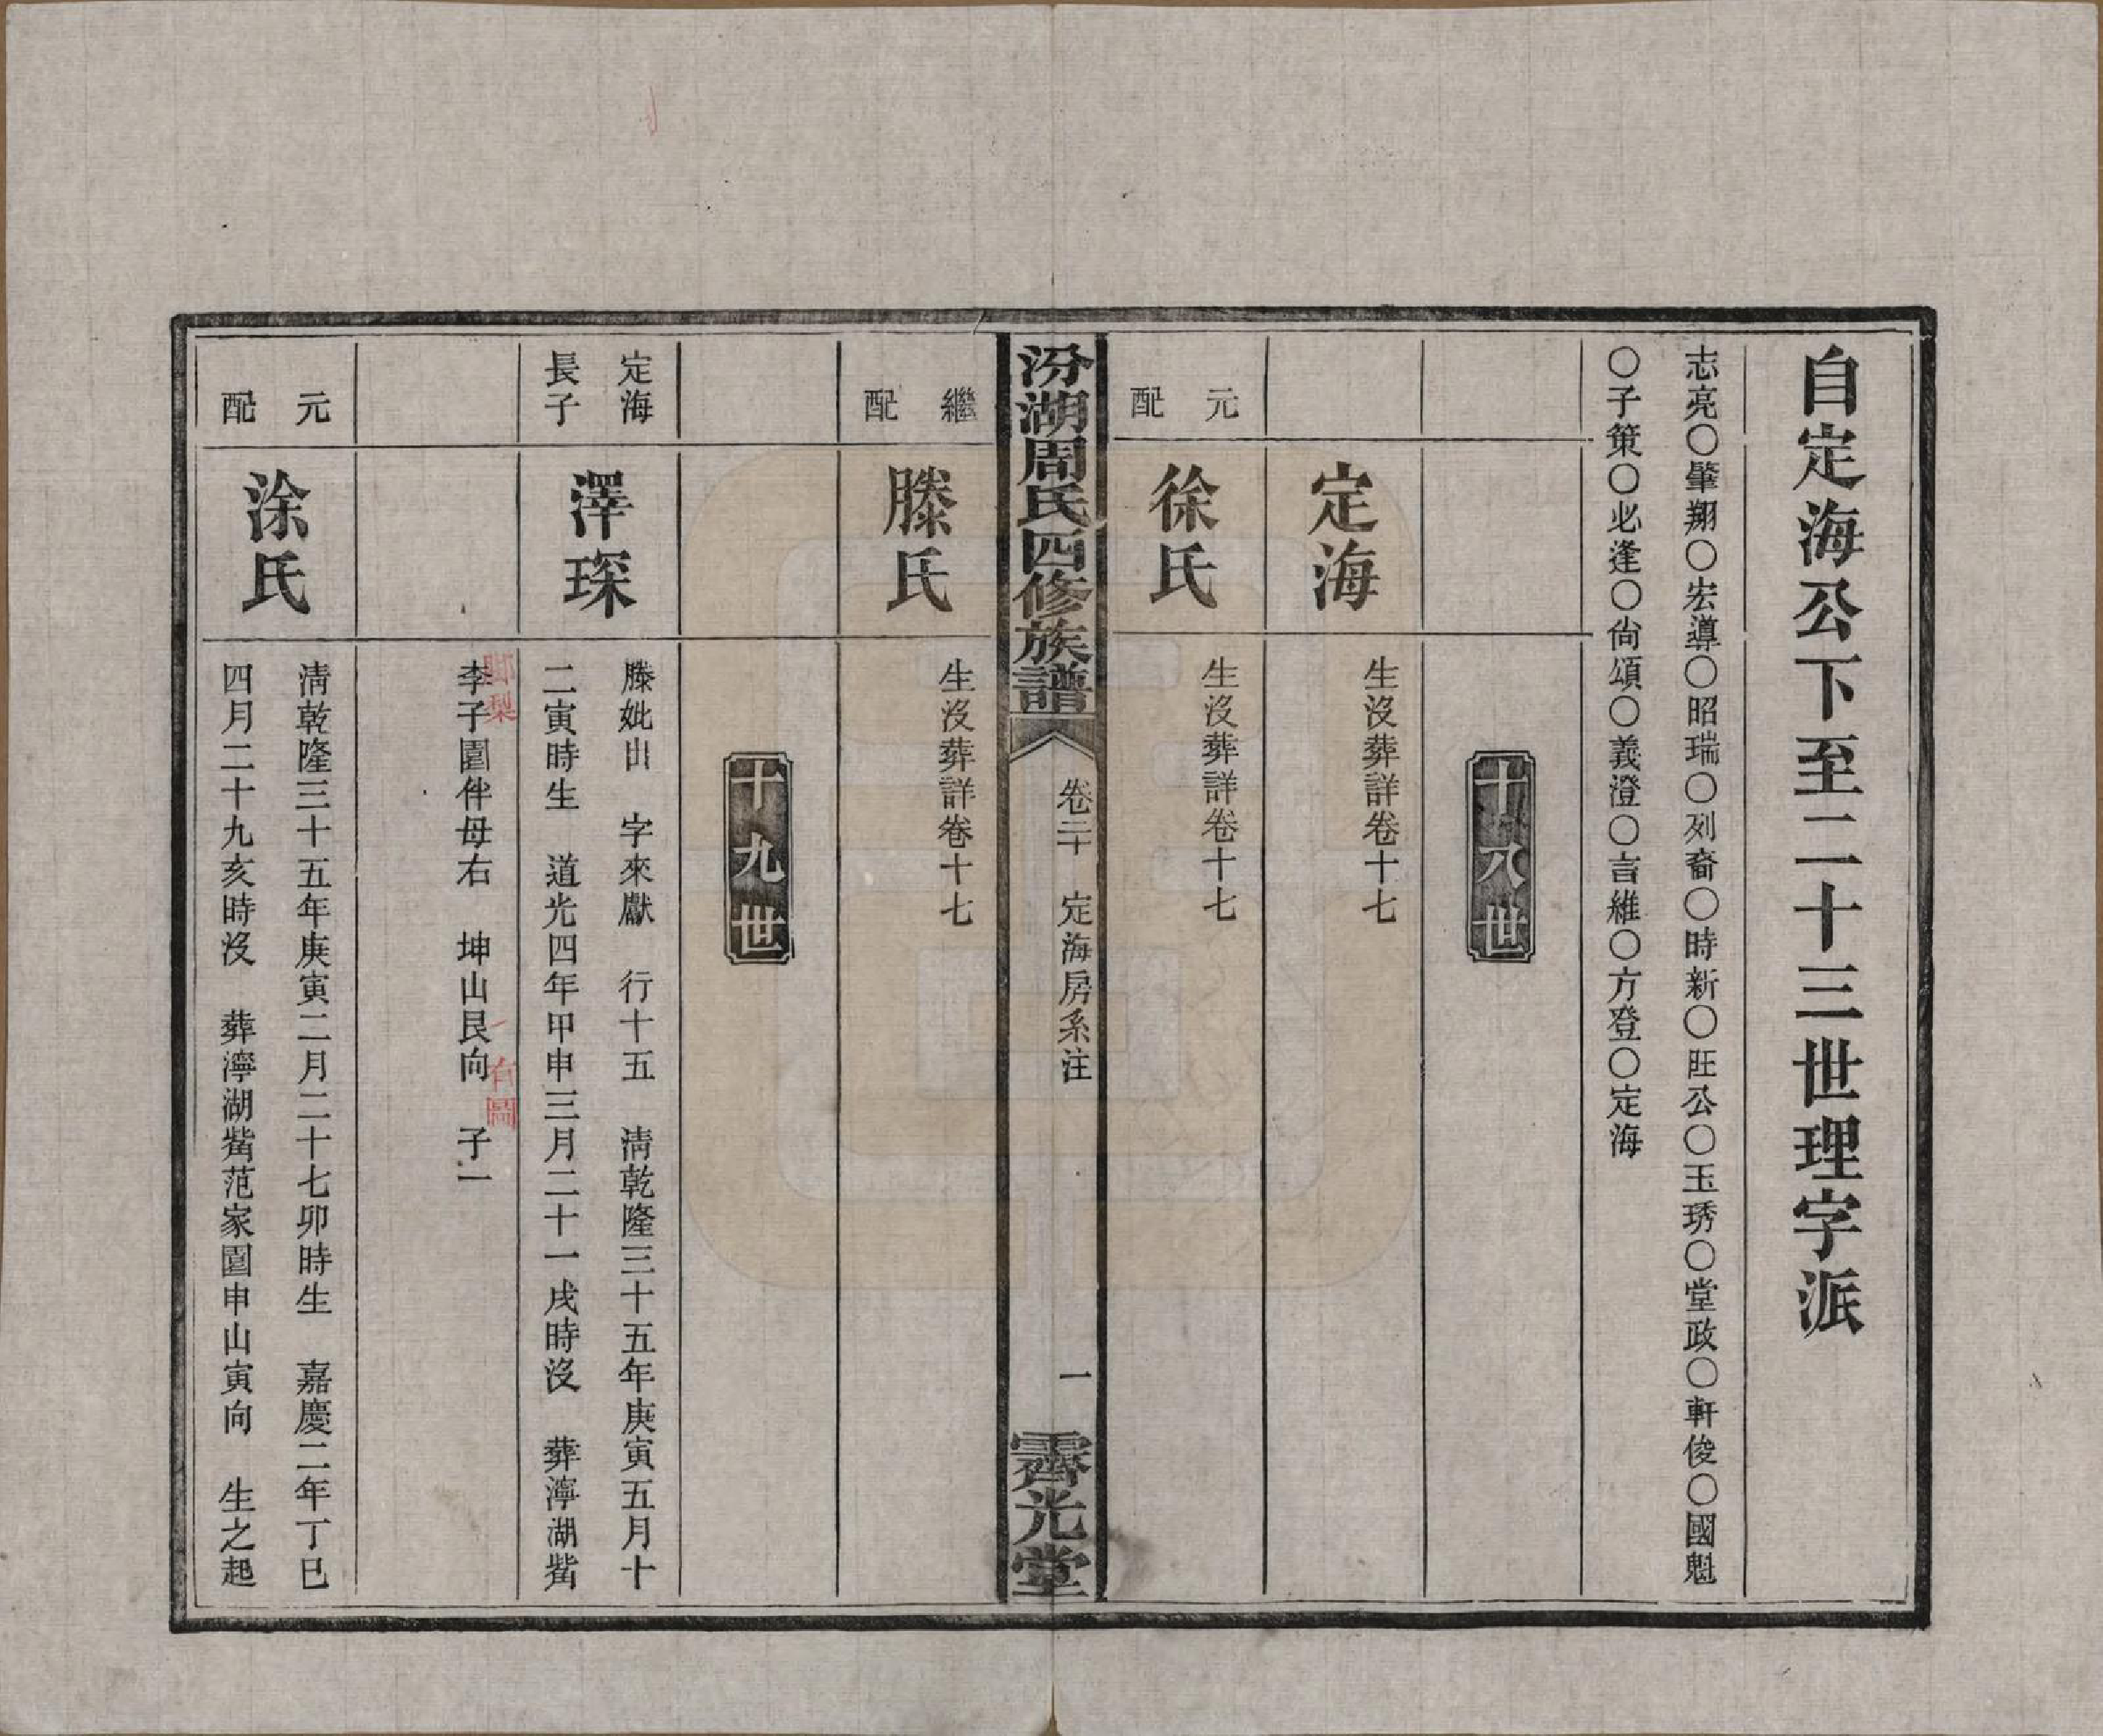 自定海公下至二十三世理字派
志亮〇肇翔〇宏導〇昭瑞〇列裔〇時新〇旺公〇玉琇〇堂政〇軒俊〇國魁
〇子策〇必逢〇尙頌〇義澄〇言維〇方登〇定海
十八世
定海
生沒葬詳卷十七
元配
徐氏
生沒葬詳卷十七
汾湖周氏四修族譜
卷二十 定海房系注
一
霽光堂
繼配
滕氏
生沒葬詳卷十七
十九世
定海
長子
澤琛
滕妣出 字來獻 行十五 淸乾隆三十五年庚寅五月十
二寅時生 道光四年甲申三月二十一戌時沒 葬濘湖觜
李子園伴母右 坤山艮向 子一
卽梨
有圖
元配
涂氏
淸乾隆三十五年庚寅二月二十七卯時生 嘉慶二年丁巳
四月二十九亥時沒 葬濘湖觜范家園申山寅向 生之起